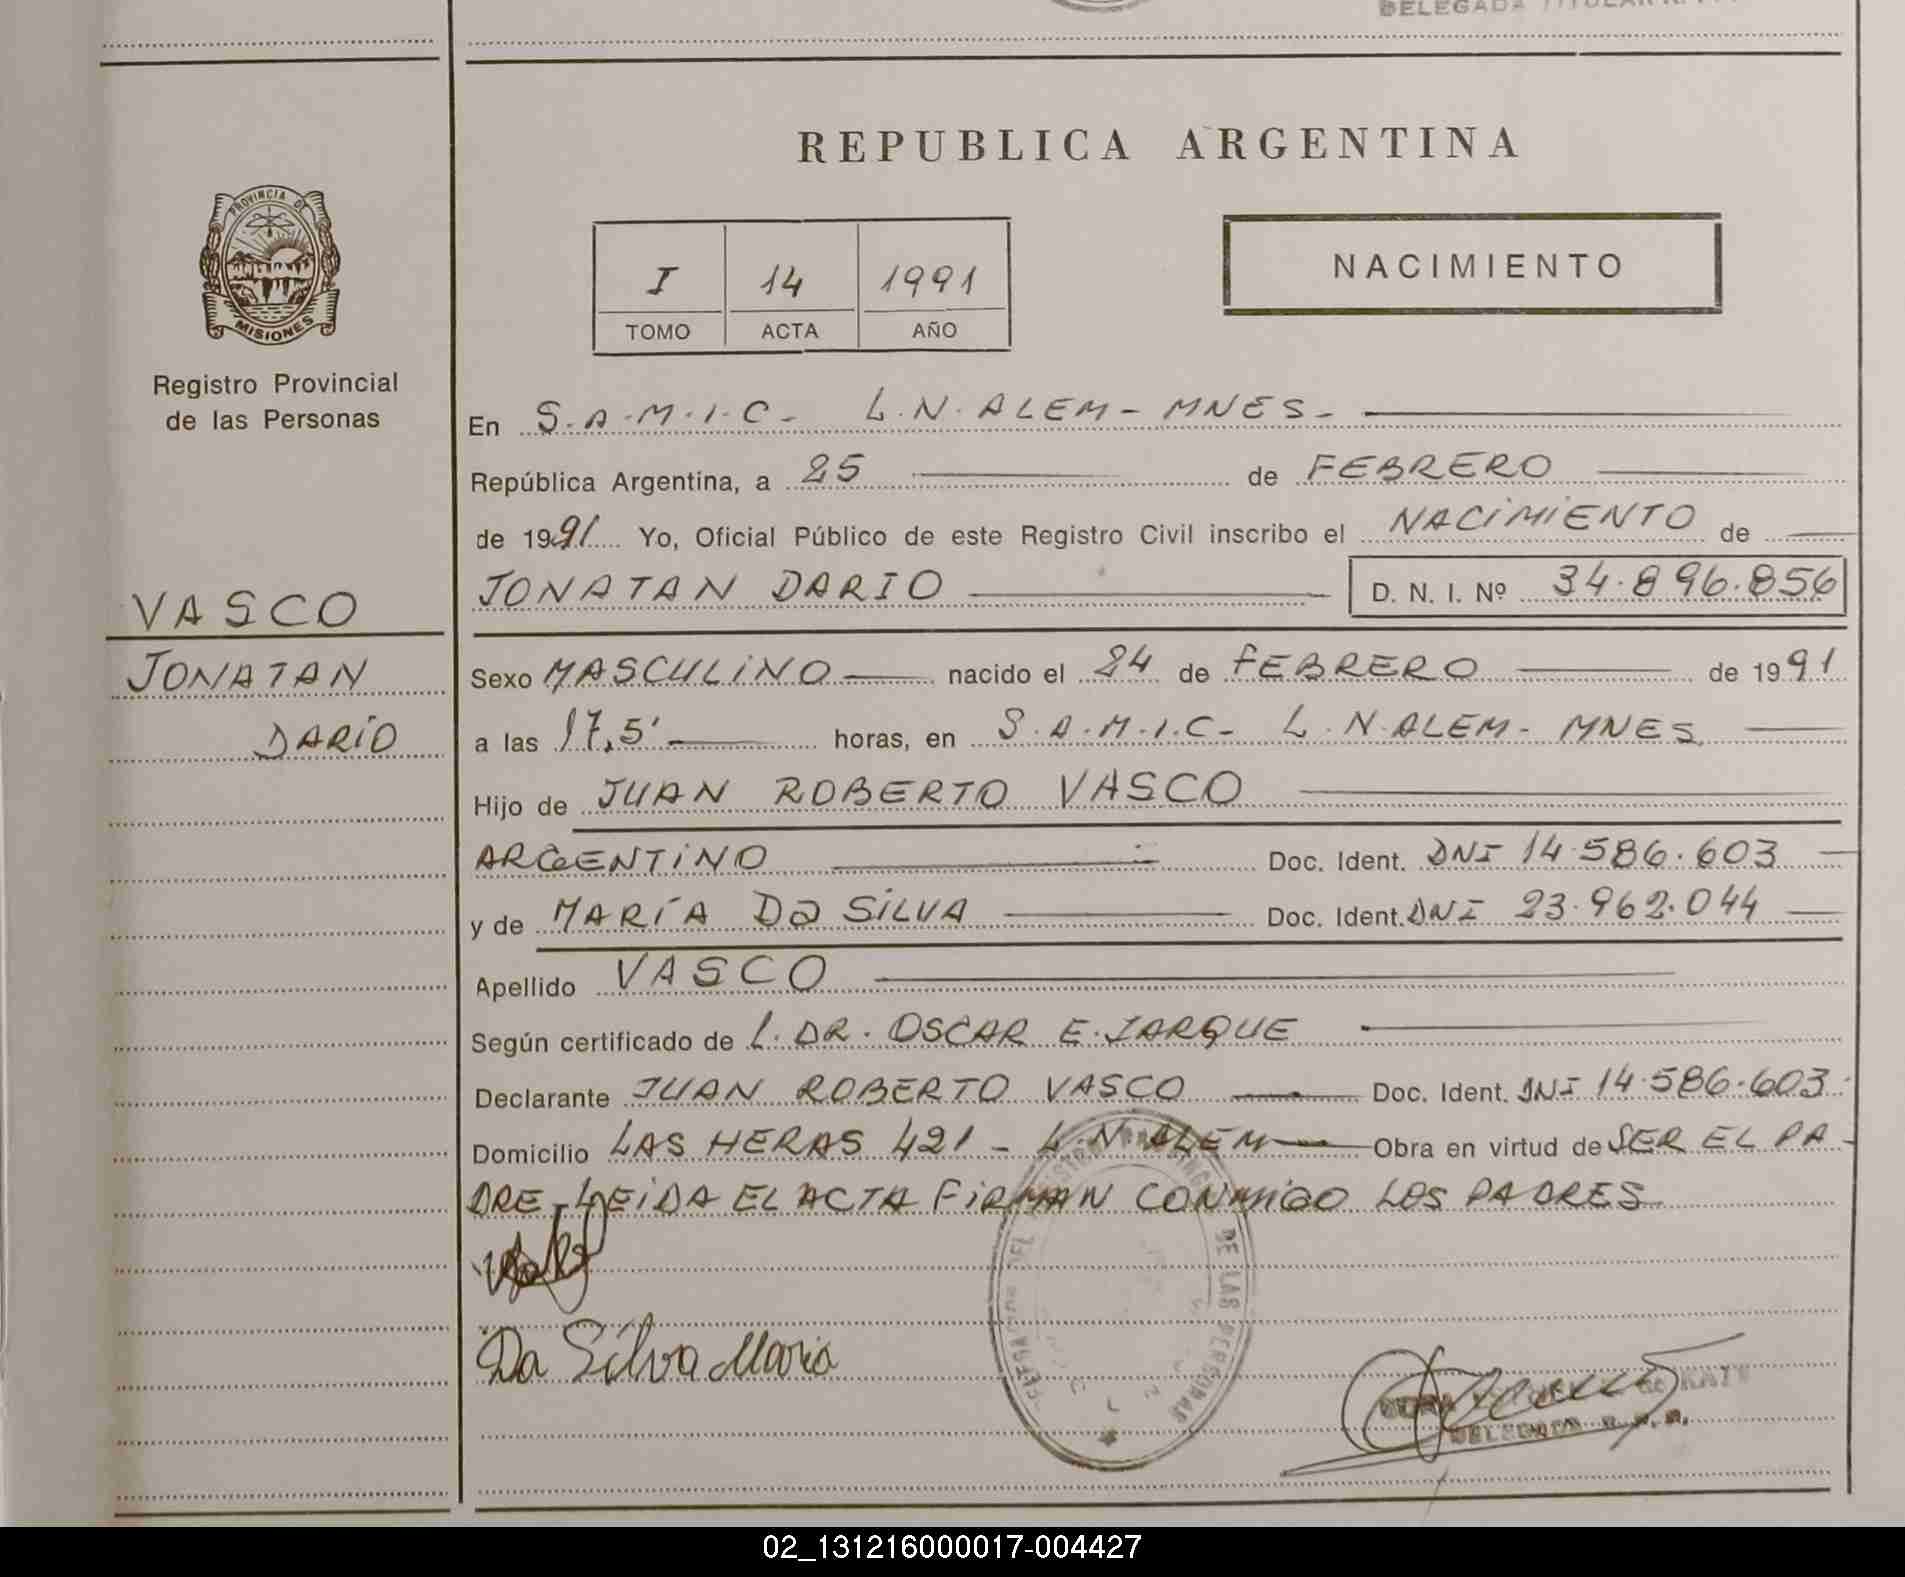 DELEGADA TITULAR R.
REPUBLICA ARGENTINA
PROVINCIA DE
MISIONES
Registro Provincial
de las Personas
I 14 1991
TOMO ACTA AÑO
NACIMIENTO
En S.A.M.I.C- L.N.ALEM-MNES-
República Argentina, a 25 de FEBRERO
de 1991 Yo, Oficial Público de este Registro Civil inscribo el NACIMIENTO de
JONATAN DARIO D. N. I. Nº 34.896.856
VASCO
JONATAN
DARIO
Sexo MASCULINO nacido el 24 de FEBRERO de 1991
a las 17,5' horas, en S.A.M.I.C- L.N.ALEM- MNES
Hijo de JUAN ROBERTO VASCO
ARGENTINO Doc. Ident. DNI 14.586.603
y de MARÍA Da SILVA Doc. Ident. DNI 23.962.044
Apellido VASCO
Según certificado de L. DR. OSCAR E. JARQUE
Declarante JUAN ROBERTO VASCO Doc. Ident. DNI 14.586.603
Domicilio LAS HERAS 421 - L.N.ALEM Obra en virtud de SER EL PA-
DRE-LEIDA EL ACTA FIRMAN CONMIGO LOS PADRES
Da Silva Maria
DE LAS PERSONAS
DELEGADA R.P.P.
02_131216000017-004427